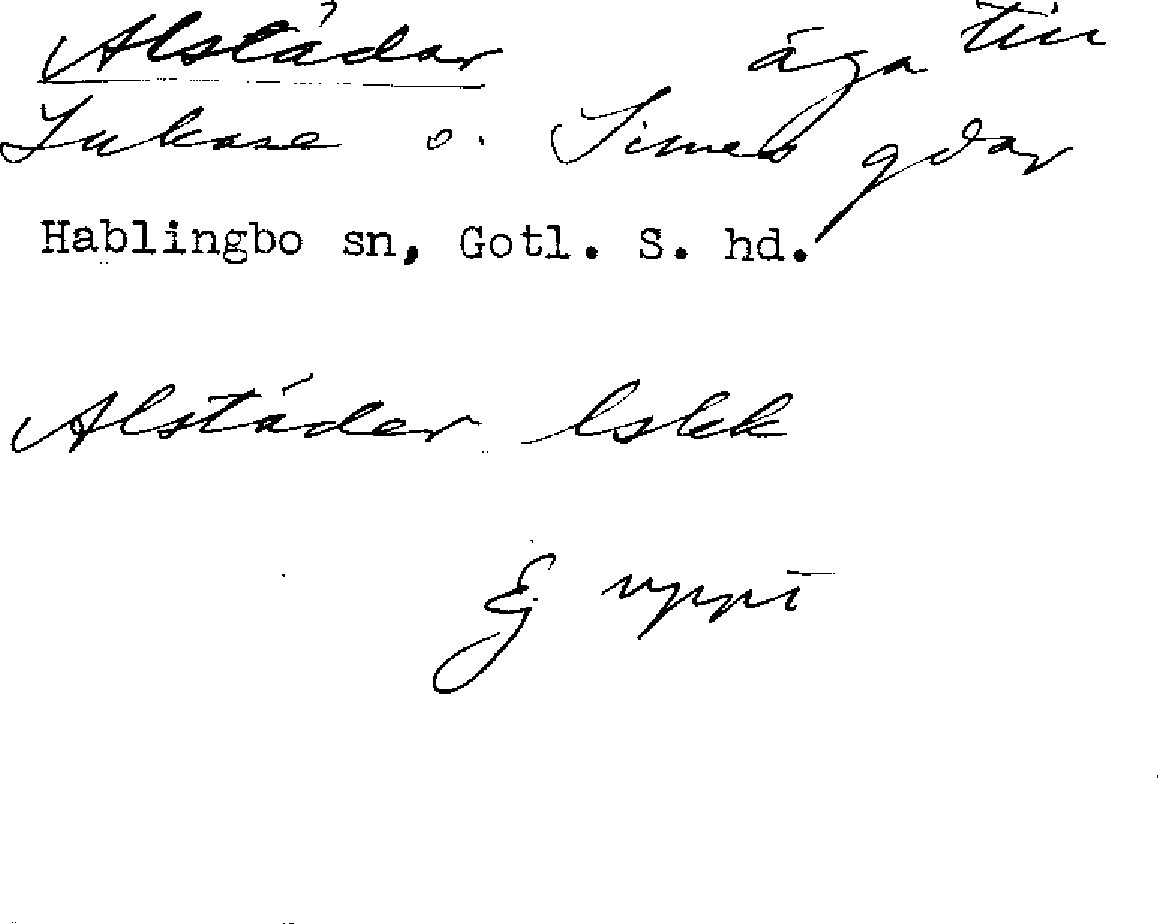 Alstádar äga till
Lukase o. Simes gdar
Hablingbo sn, Gotl. S. hd.
Alstáder lskk
Ej uppt